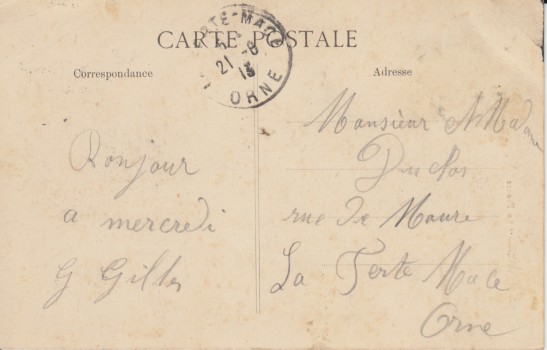 CARTE POSTALE
TE-MACÉ
21 -8
13
ORNE
Correspondance
Bonjour
a mercredi
G Gilles
Adresse
Monsieur & Madame
Duclos
rue de
La Ferte Mace
Orne